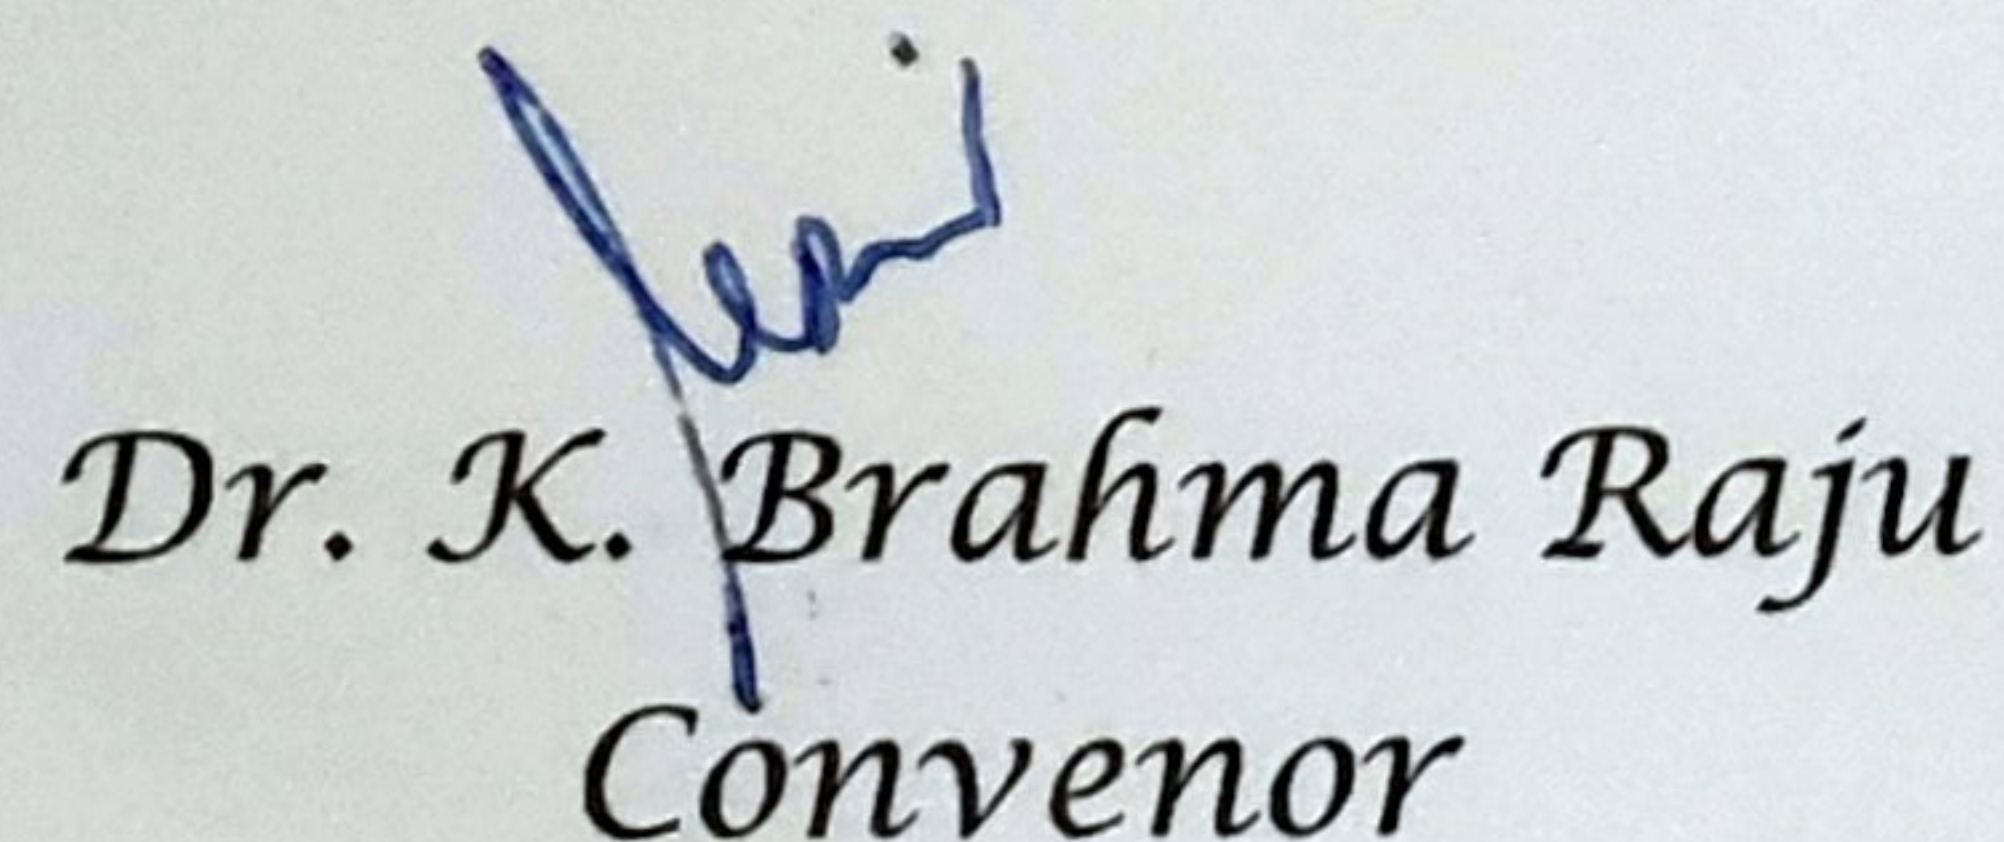 Dr. K. Brahma Raju
Convenor